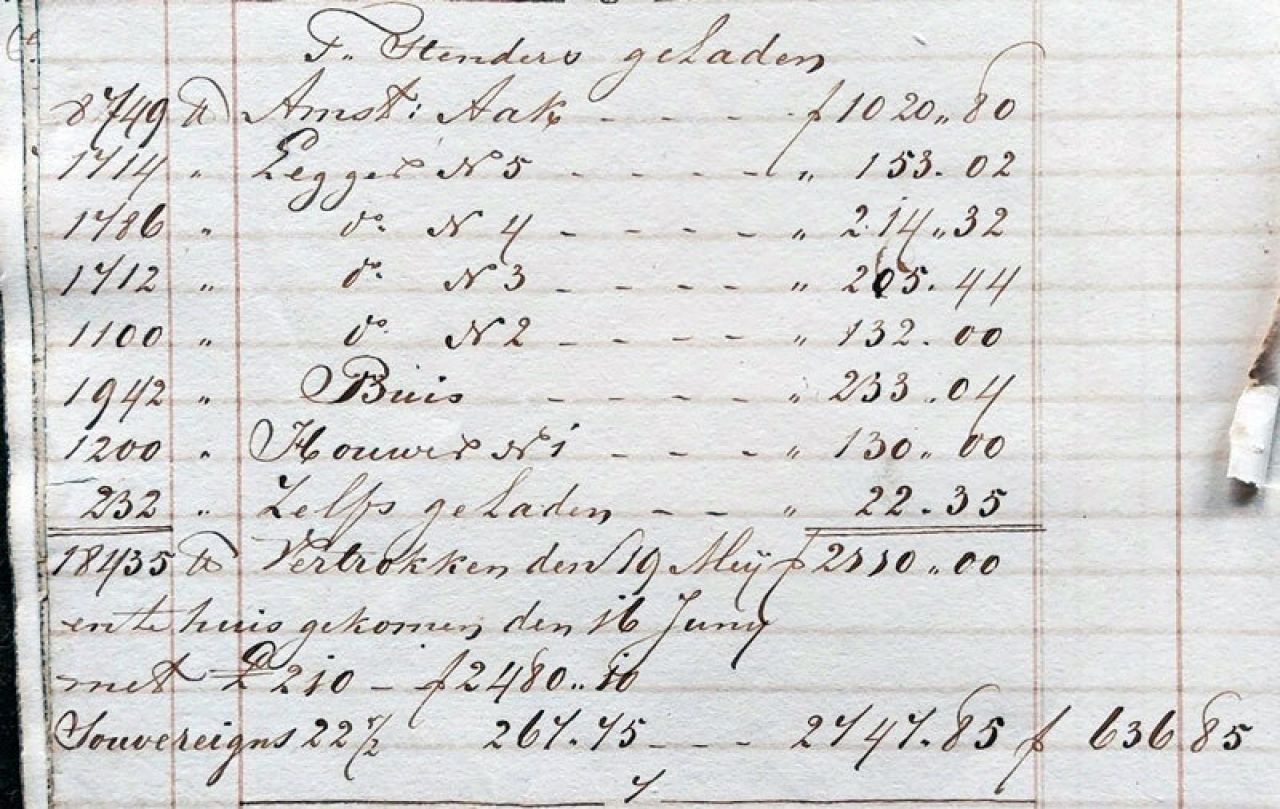 T.. Stenders geladen
8749 ℔ Amst: Aak - - - - f 1020.. 80
1714 " Legger N 5 - - - - " 153. 02
1786 " do. N 4 - - - - " 214 .. 32
1712 " do. N 3 - - - - " 205. 44
1100 " do. N 2 - - - - " 132. 00
1942 " Buis - - - - " 233 .. 04
1200 " Houwer N 1 - - - " 130 .. 00
232 " Zelfs geladen - - " 22. 35
18435 ℔ Vertrokken den 19 Meÿ f 2110 .. 00
en te huis gekomen den 16 Juny
met £ 210 - f 2480 .. 10
Souvereigns 22 1/2 267. 75 - - - 2747. 85 f 636 85